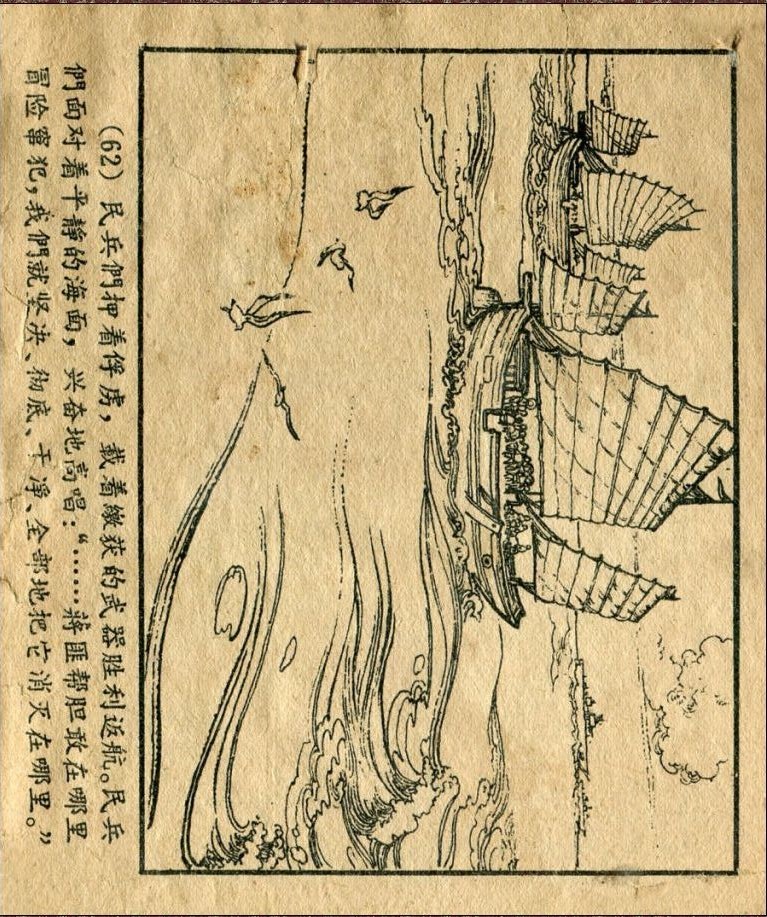 (62) 民兵們押着俘虏，载着缴获的武器胜利返航。民兵
們面对着平静的海面，兴奋地高唱：“……蔣匪帮胆敢在哪里
冒险窜犯，我們就坚决、彻底、干净、全部地把它消灭在哪里。”